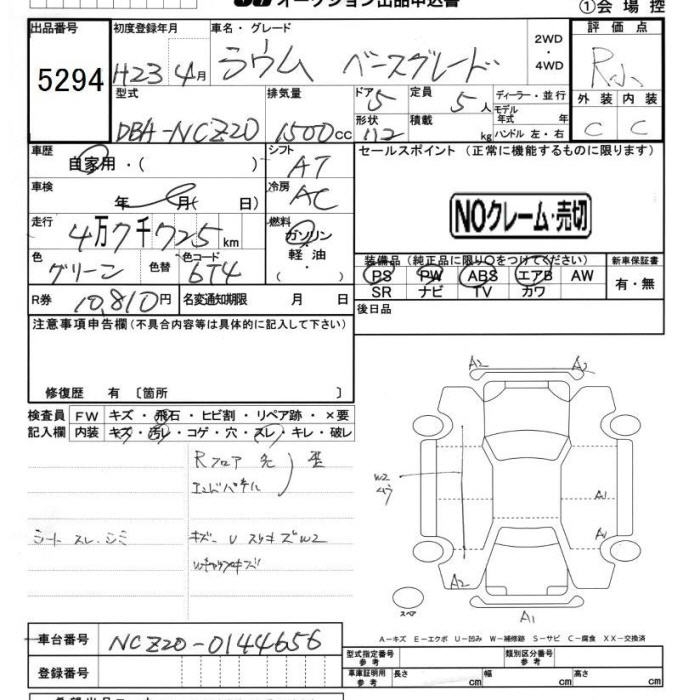 オークション出品申込書
①会場控
出品番号 初度登録年月 車名・グレード 評価点
5294 H23 4月 ラウム ベースグレード 2WD・4WD R
型式 排気量 ドア 定員 ディーラー・並行 外装 内装
DBA-NCZ20 1500cc 5 5人 モデル年式 年 C C
形状 積載 kg ハンドル 左・右
車歴 自家用・( ) シフト AT セールスポイント(正常に機能するものに限ります)
車検 年 月( 日) 冷房 AC
NOクレーム・売切
走行 4万7千725km 燃料 ガソリン
軽油・( )
色 グリーン 色替 色コード 6T4
装備品(純正品に限り○をつけてください) 新車保証書
PS PW ABS エアB AW 有・無
SR ナビ TV カワ
R券 10,810円 名変通知期限 月 日 後日品
注意事項申告欄(不具合内容等は具体的に記入して下さい)
修復歴 有〔箇所 〕
検査員 FW キズ・飛石・ヒビ割・リペア跡・×要
記入欄 内装 キズ・汚レ・コゲ・穴・スレ・キレ・破レ
Rフロア 先
エンドパネル
シート スレ.シミ キズ- U スリキズ W2
A2
A2
W2
A1
A1
A2
スペア
A1
A-キズ E-エクボ U-凹み W-補修跡 S-サビ C-腐食 XX-交換済
車台番号 NCZ20-0144656
型式指定番号 参考 類別区分番号 参考
登録番号 車庫証明用 参考 長さ cm 幅 cm 高さ cm